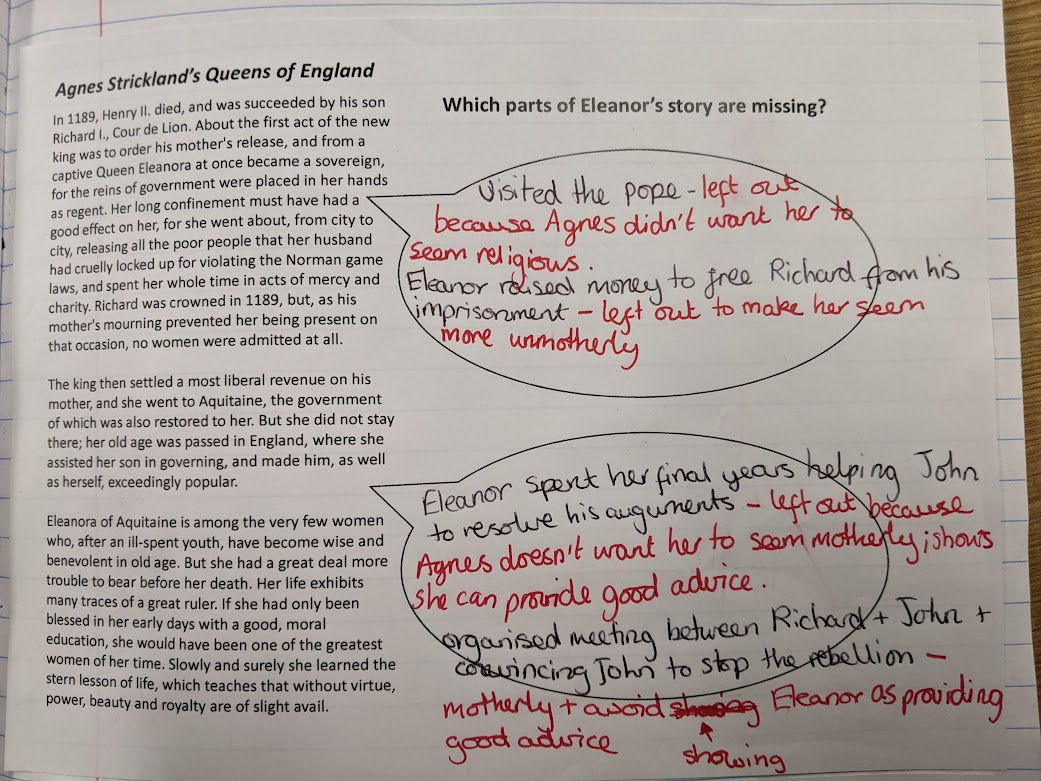 Agnes Strickland's Queens of England
In 1189, Henry II. died, and was succeeded by his son
Richard I., Cour de Lion. About the first act of the new
king was to order his mother's release, and from a
captive Queen Eleanora at once became a sovereign,
for the reins of government were placed in her hands
as regent. Her long confinement must have had a
good effect on her, for she went about, from city to
city, releasing all the poor people that her husband
had cruelly locked up for violating the Norman game
laws, and spent her whole time in acts of mercy and
charity. Richard was crowned in 1189, but, as his
mother's mourning prevented her being present on
that occasion, no women were admitted at all.
The king then settled a most liberal revenue on his
mother, and she went to Aquitaine, the government
of which was also restored to her. But she did not stay
there; her old age was passed in England, where she
assisted her son in governing, and made him, as well
as herself, exceedingly popular.
Eleanora of Aquitaine is among the very few women
who, after an ill-spent youth, have become wise and
benevolent in old age. But she had a great deal more
trouble to bear before her death. Her life exhibits
many traces of a great ruler. If she had only been
blessed in her early days with a good, moral
education, she would have been one of the greatest
women of her time. Slowly and surely she learned the
stern lesson of life, which teaches that without virtue,
power, beauty and royalty are of slight avail.
Which parts of Eleanor's story are missing?
Visited the pope - left out
because Agnes didn't want her to
seem religious.
Eleanor raised money to free Richard from his
imprisonment - left out to make her seem
more unmotherly
Eleanor spent her final years helping John
to resolve his auguments - left out because
Agnes doesn't want her to seem motherly; shows
she can provide good advice.
organised meeting between Richard + John +
convincing John to stop the rebellion -
motherly + avoid Eleanor as providing
good advice
showing